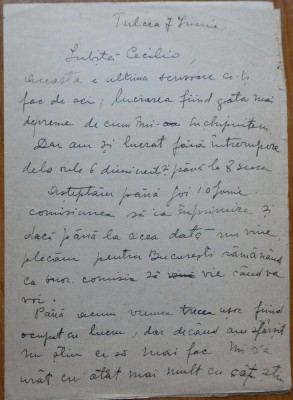 Tulcea 7 Iunie.
Iubită Cecilio,
Aceasta e ultima scrisoare ce-ți
fac de aci, lucrarea fiind gata mai
depreme de cum îmi închipuiam.
Dar am și lucrat fără întrerupere
dela orile 6 dimineață până la 8 seara
Așteptăm până Joi 10 Iunie
comisiunea să ia în primire și
dacă până la acea dată nu vine
plecăm pentru București rămânând
ca onor. comisie să vie când va
voi.
Până acum vremea trecea ușor fiind
ocupat cu lucru, dar decând am sfârșit
nu știu ce să mai fac. Mi s'a
urât cu atât mai mult cu cât știu